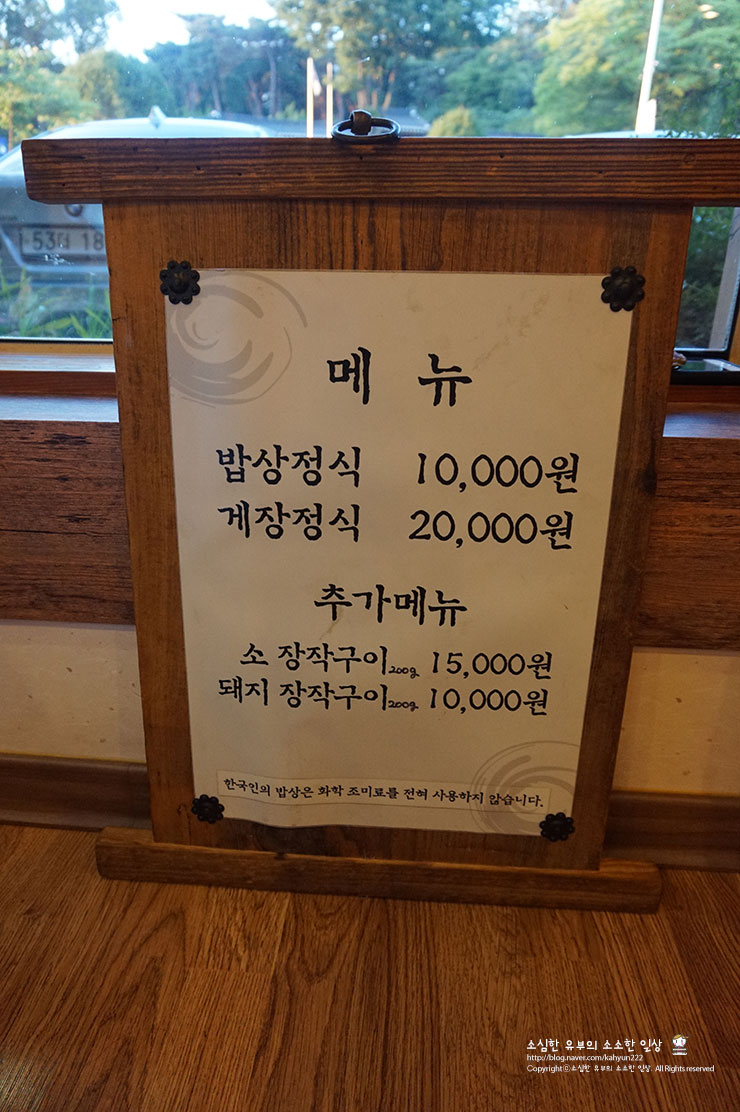 53더 18
메 뉴
밥상정식 10,000원
게장정식 20,000원
추가메뉴
소 장작구이200g 15,000원
돼지 장작구이200g 10,000원
한국인의 밥상은 화학 조미료를 전혀 사용하지 않습니다.
소심한 유부의 소소한 일상
http://blog.naver.com/kahyun222
Copyright ⓒ소심한 유부의 소소한 일상. All Rights reserved